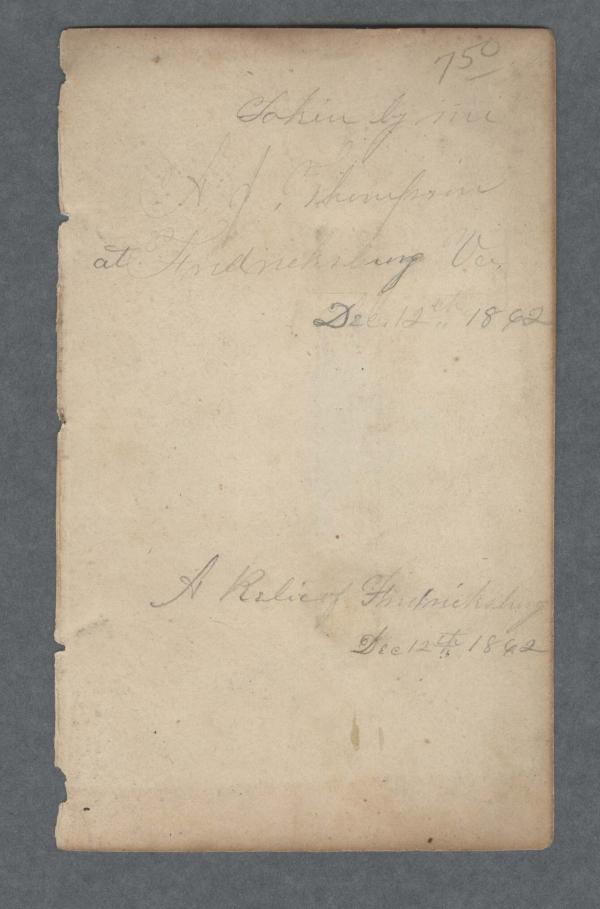 7 50
Taken by me
A. J. Thompson
at Fredricksburg Va.
Dec. 12th 1862
A Relic of Fredricksburg
Dec 12th 1862